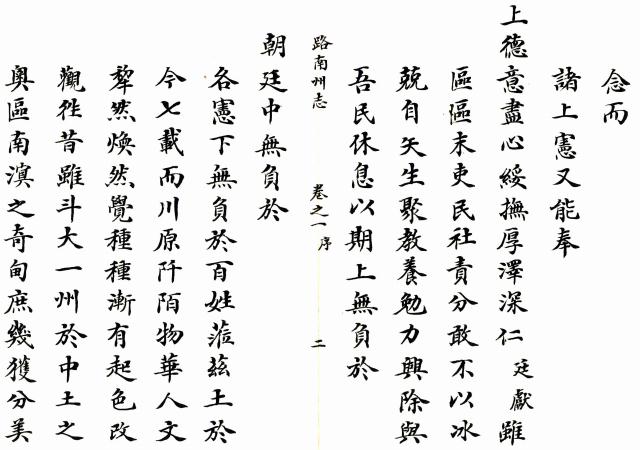 念而
諸上憲又能奉
上德意盡心綏撫厚澤深仁 廷獻 雖
區區末吏民社責分敢不以冰
兢自矢生聚教養勉力興除與
吾民休息以期上無負於
路南州志 卷之一 序 二
朝廷中無負於
各憲下無負於百姓蒞茲土於
今七載而川原阡陌物華人文
犂然煥然覺種種漸有起色改
觀徃昔雖斗大一州於中土之
奧區南滇之奇甸庶幾獲分美